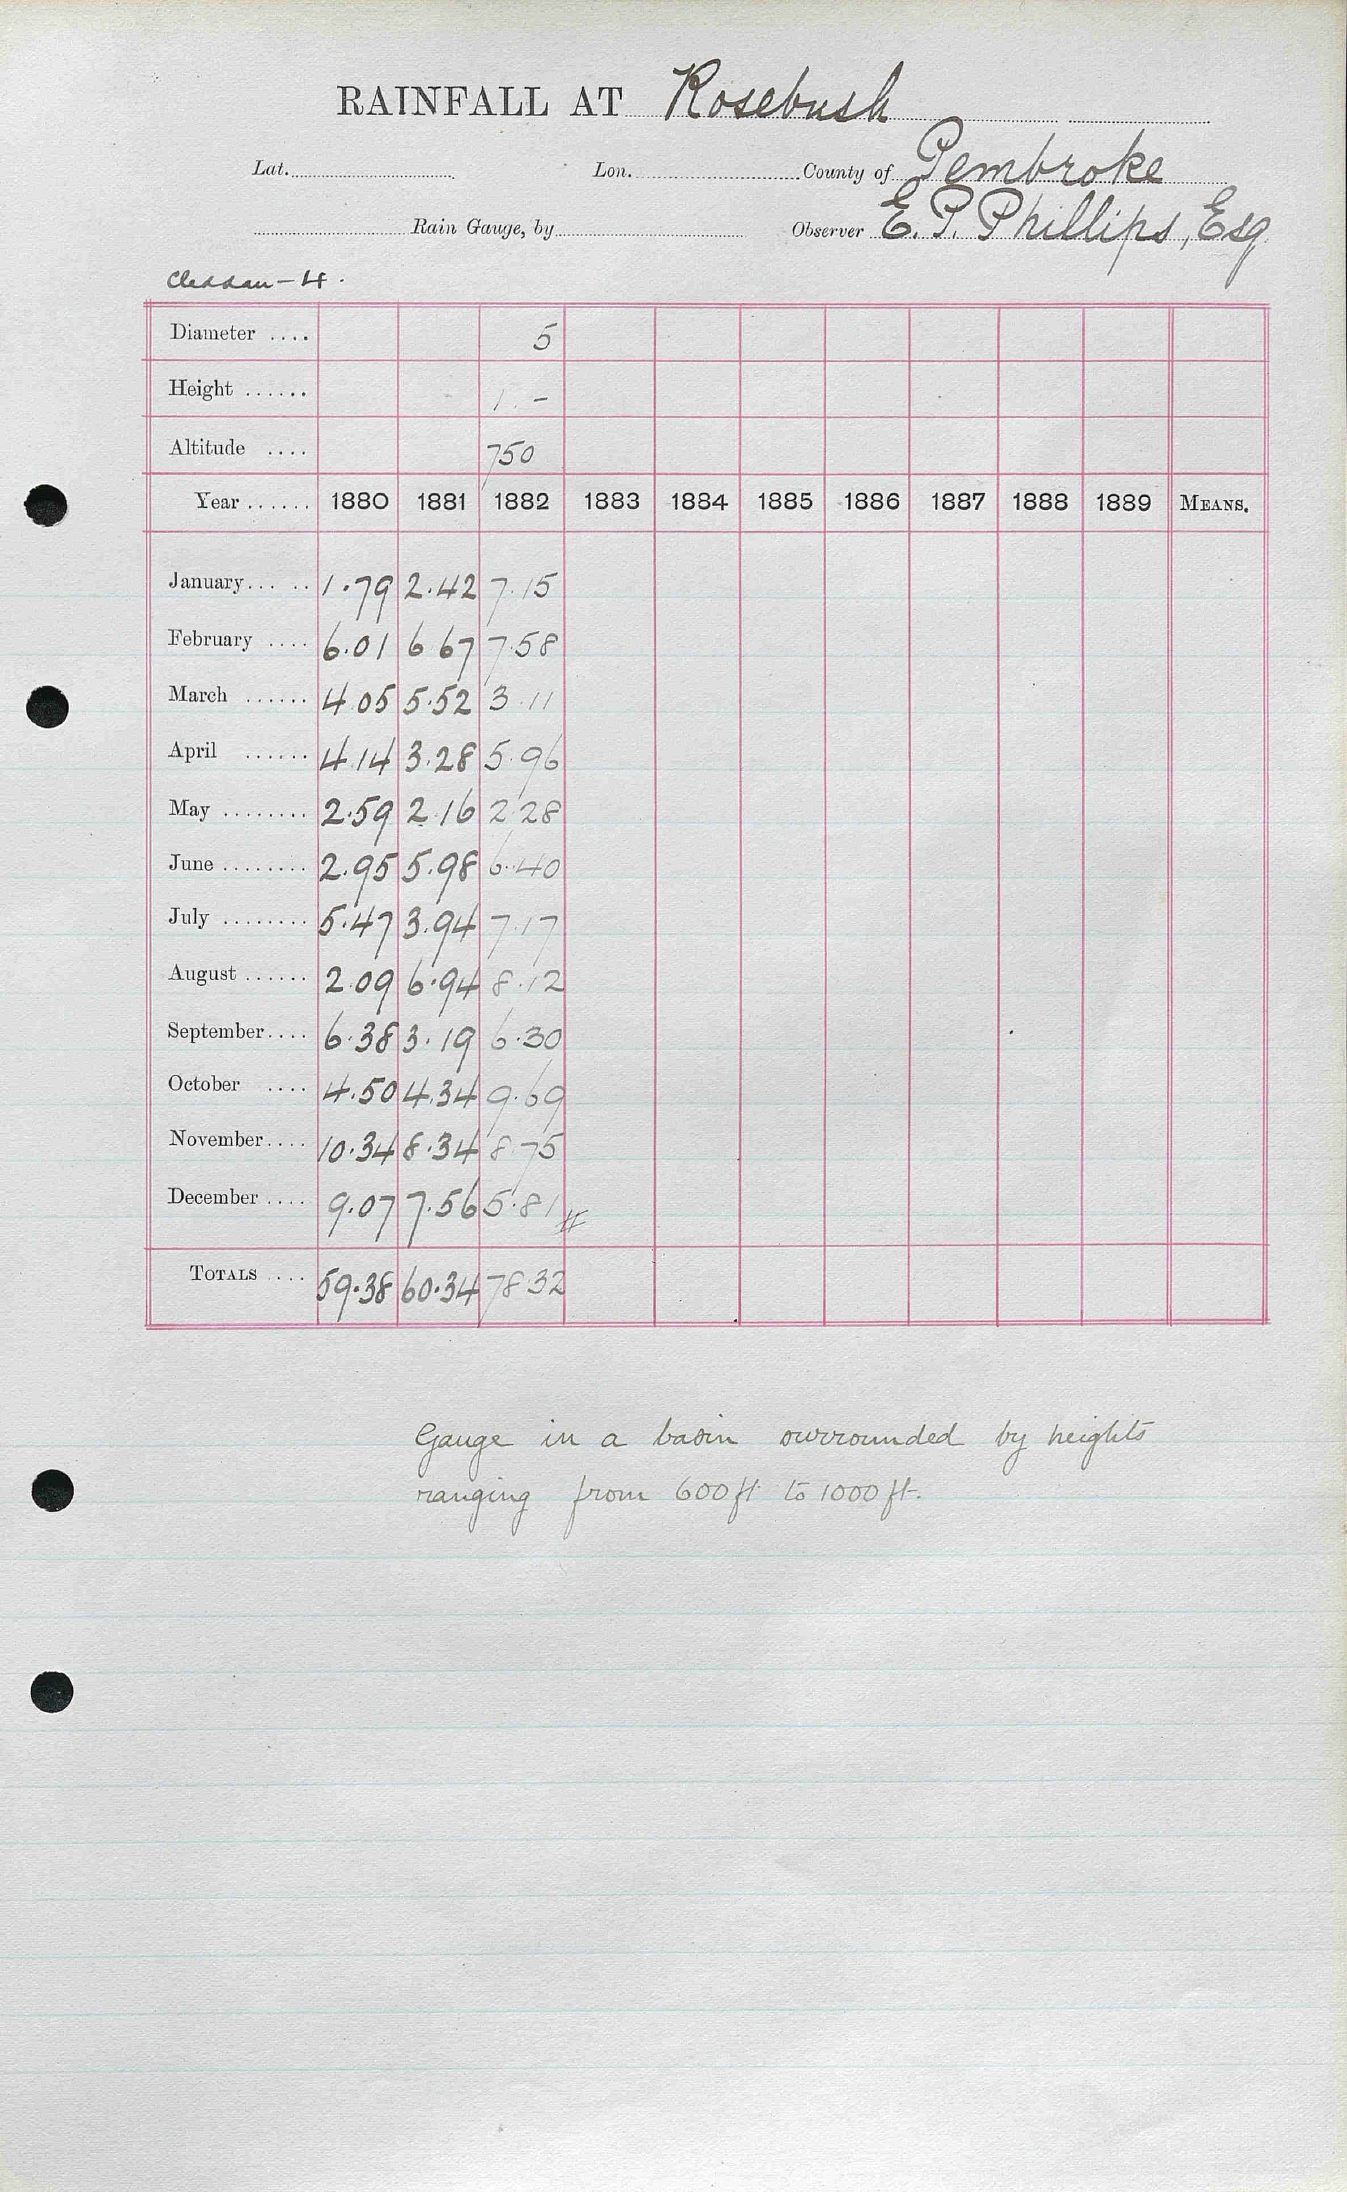 RAINFALL AT Rosebush
Lat. Lon. County of Pembroke
Rain Gauge, by Observer E. P. Phillips, Esq
Cleddau - 4.
Diameter .... 5
Height ...... 1 . -
Altitude .... 750
Year ...... 1880 1881 1882 1883 1884 1885 1886 1887 1888 1889 MEANS.
January ..... 1.79 2.42 7.15
February .... 6.01 6 67 7.58
March ...... 4.05 5.52 3.11
April ...... 4.14 3.28 5.96
May ........ 2.59 2.16 2.28
June ........ 2.95 5.98 6.40
July ........ 5.47 3.94 7.17
August ...... 2.09 6.94 8.12
September .... 6.38 3.19 6.30
October .... 4.50 4.34 9.69
November .... 10.34 8.34 8.75
December .... 9.07 7.56 5.81 #
TOTALS .... 59.38 60.34 78.32
Gauge in a basin surrounded by heights
ranging from 600 ft to 1000 ft.